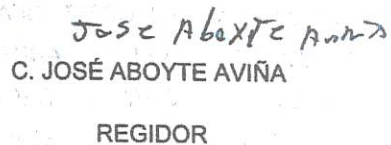 Jose Aboxte Aviña
C. JOSÉ ABOYTE AVIÑA
REGIDOR